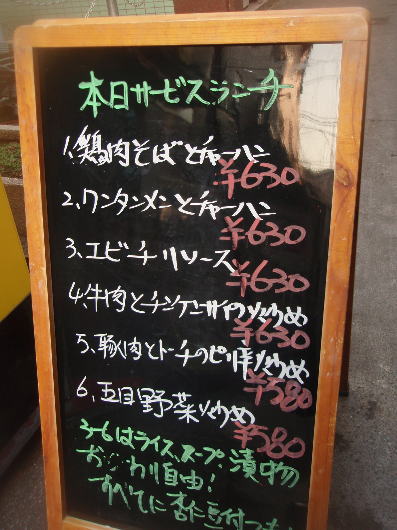 本日サービスランチ
1、鶏肉そばとチャーハン
¥630
2、ワンタンメンとチャーハン
¥630
3、エビチリソース
¥630
4、牛肉とチンゲンサイのいため
¥630
5、豚肉とトーチのピリ辛いため
¥580
6、五目野菜いため
¥580
3~6はライス、スープ、漬物
おかわり自由!
すべてに杏仁豆付